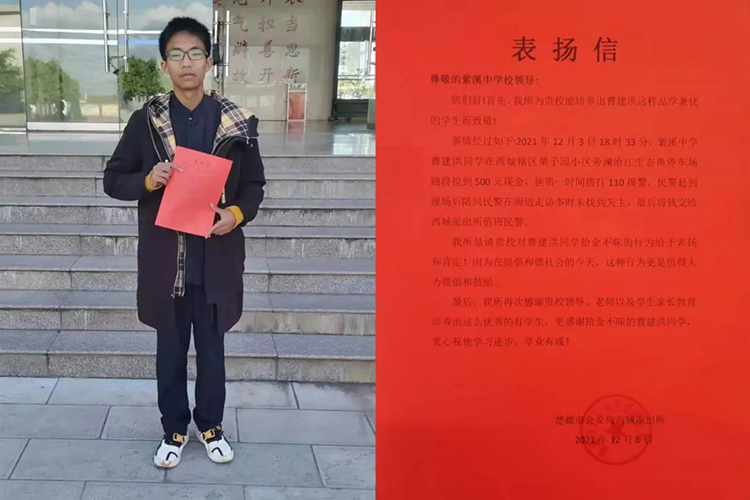 表扬信
尊敬的紫溪中学校领导:
您们好!首先,我所为贵校能培养出曹建洪这样品学兼优
的学生而致敬!
事情经过如下:2021年12月3日18时33分,紫溪中学
曹建洪同学在西城辖区栗子园小区旁澜沧江生态鱼停车场
路段捡到500元现金,他第一时间拨打110报警,民警赶到
现场后陪同民警在周边走访多时未找到失主,最后将钱交给
西城派出所值班民警。
我所恳请贵校对曹建洪同学拾金不昧的行为给于表扬
和肯定!因为在提倡和谐社会的今天,这种行为更是值得大
力提倡和鼓励。
最后,我所再次感谢贵校领导、老师以及学生家长教育
培养出这么优秀的好学生,更感谢拾金不昧的曹建洪同学,
衷心祝他学习进步,学业有成!
楚雄市公安局西城派出所
2021年12月6日